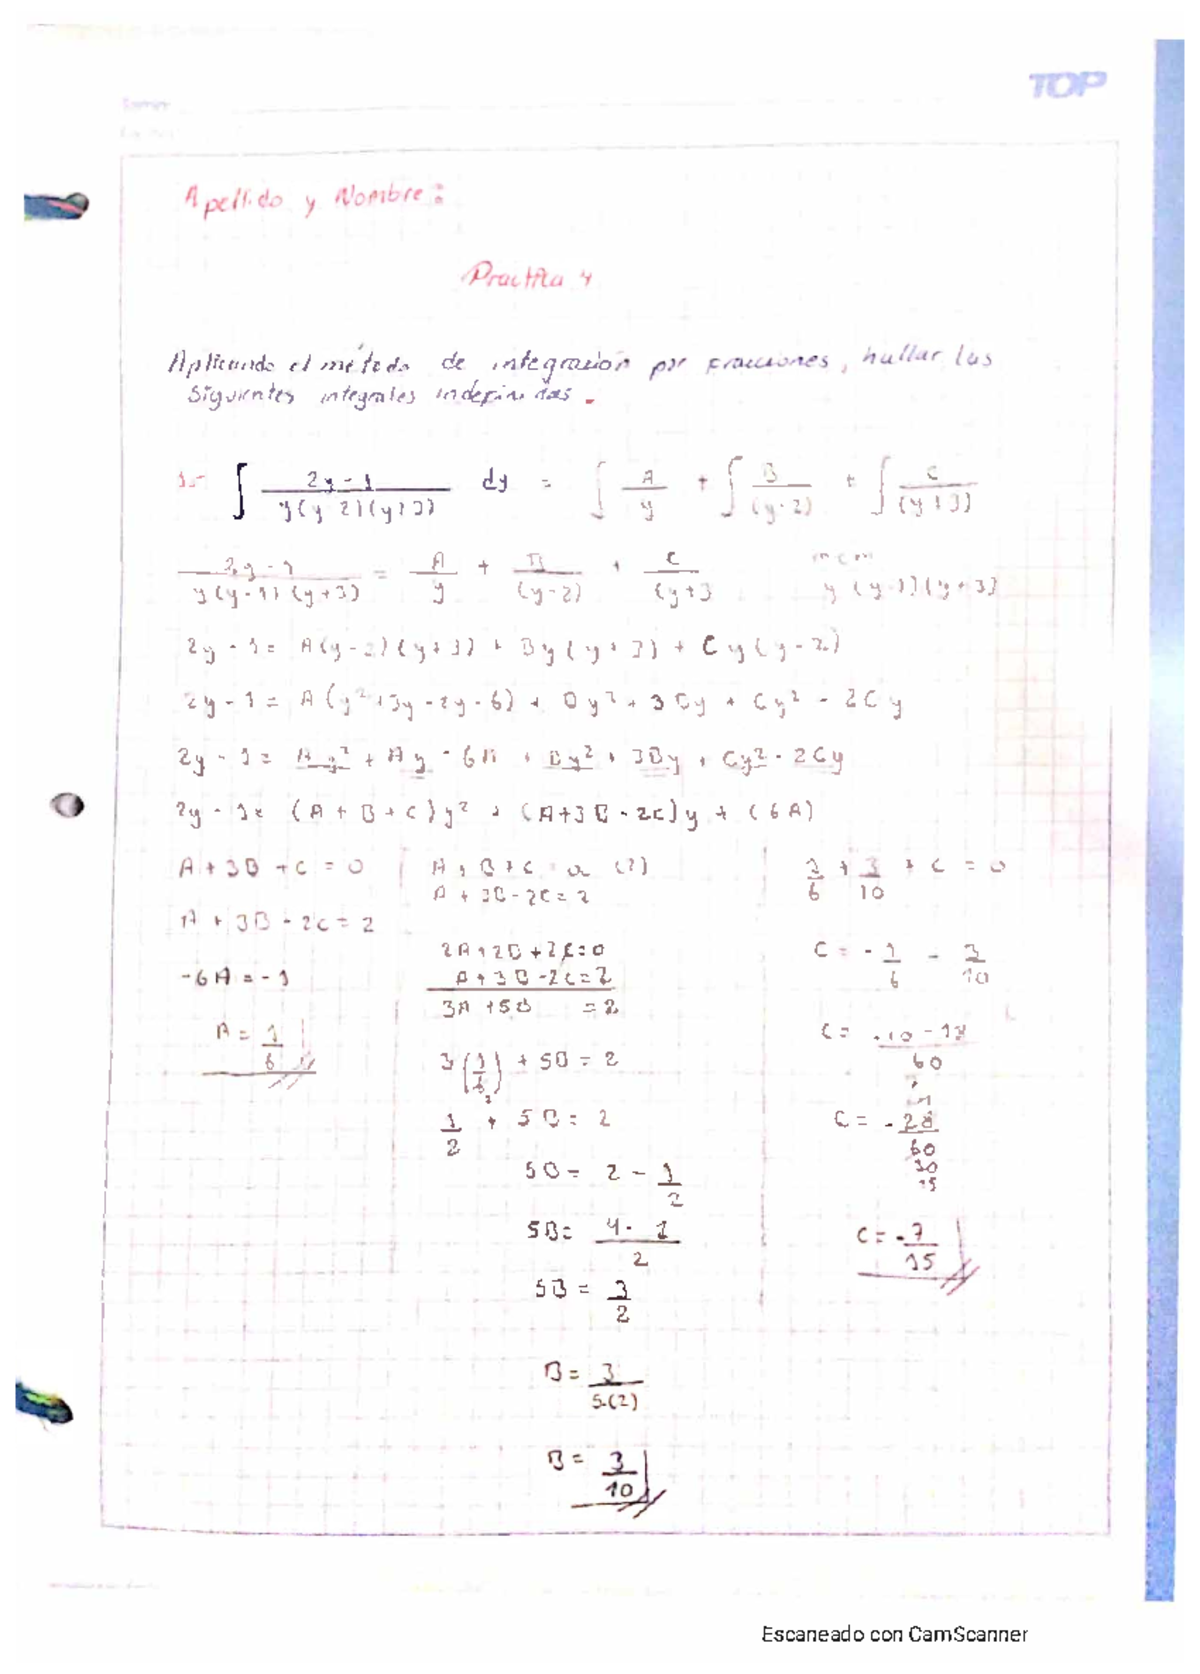 TOP
Apellido y Nombre:
Practica 4
Aplicando el método de integración por fracciones, hallar las
siguientes integrales indefinidas.
1.- ∫ (2y - 1) / (y(y-2)(y+3)) dy = ∫ A/y + ∫ B/(y-2) + ∫ C/(y+3)
(2y - 1) / (y(y-1)(y+3)) = A/y + B/(y-2) + C/(y+3 mcm y(y-1)(y+3)
2y - 1 = A(y-2)(y+3) + By(y+3) + Cy(y-2)
2y - 1 = A(y²+3y-2y-6) + By²+3By + Cy² - 2Cy
2y - 1 = Ay² + Ay - 6A + By² + 3By + Cy² - 2Cy
2y - 1 = (A+B+C)y² + (A+3B-2C)y + (6A)
A + 3B + C = 0
A + 3B - 2C = 2
-6A = -1
A = 1/6
A + B + C = 0 (2)
A + 3B - 2C = 2
2A + 2B + 2C = 0
A + 3B - 2C = 2
3A + 5B = 2
3(1/6) + 5B = 2
1/2 + 5B = 2
5B = 2 - 1/2
5B = (4 - 1)/2
5B = 3/2
B = 3/5.(2)
B = 3/10
1/6 + 3/10 + C = 0
C = -1/6 - 3/10
C = (-10 - 18)/60
C = -28/60
30
15
C = -7/15
Escaneado con CamScanner